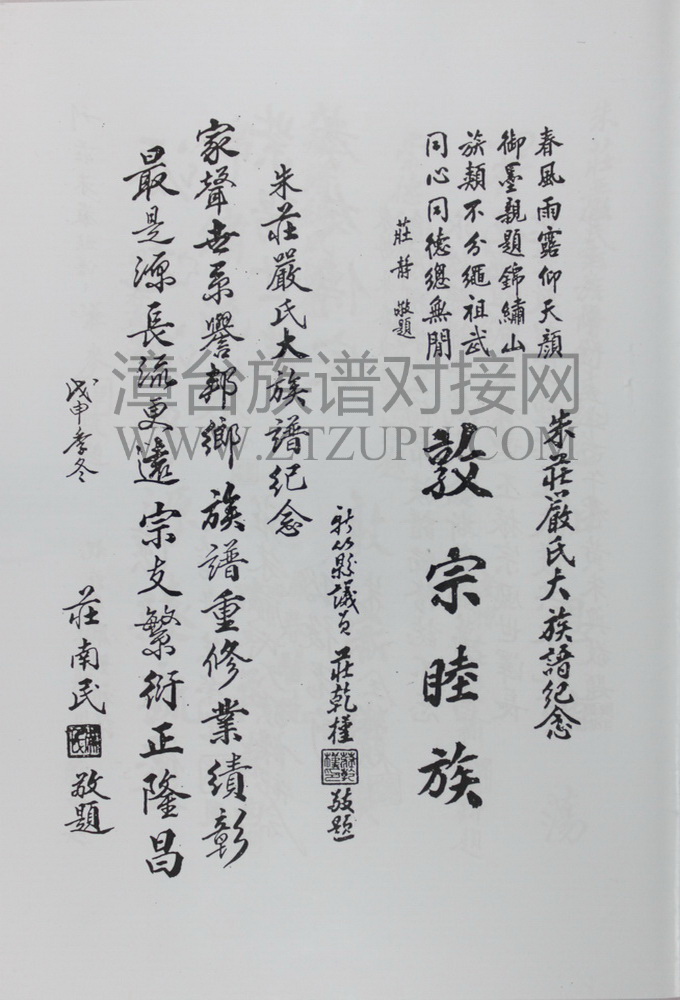 春風雨露仰天顏
御墨親題錦繡山
族類不分繩祖武
同心同德總無閒
莊靜 敬題
朱莊嚴氏大族譜紀念
敦宗睦族
新竹縣議員 莊乾槿 敬題
朱莊嚴氏大族譜紀念
家聲世系譽邦鄉 族譜重修業績彰
最是源長流更遠 宗支繁衍正隆昌
戊申季冬
莊南民 敬題
漳台族谱对接网
WWW.ZTZUPU.COM